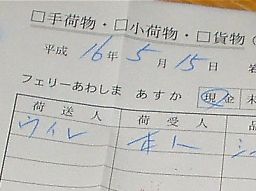 □手荷物・□小荷物・□貨物(
平成 16年 5月 15日
フェリーあわしま あすか 現金
荷送人 荷受人 品
ウイレ